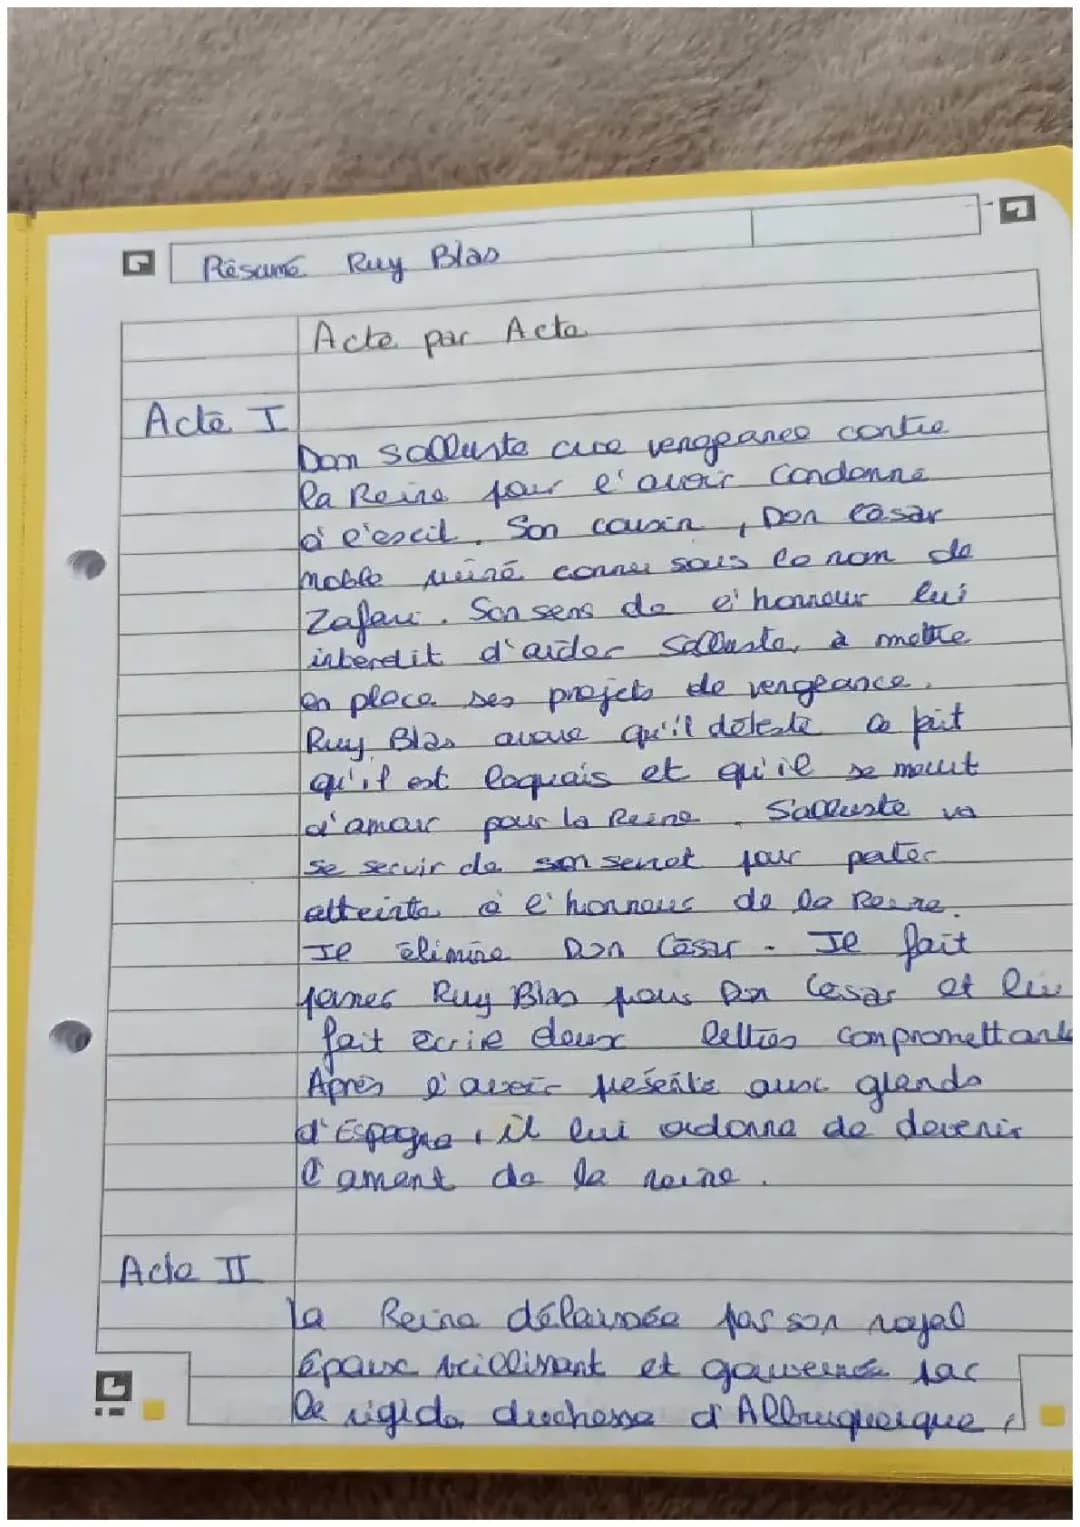 Résumé Ruy Blas
Acte par Acte
Acte I
Dom Salluste crie vengeance contre
la Reine pour l'avoir condonne
à l'escil. Son cousin, Don César
noble ruiné connu sous le nom de
Zafari. Son sens de l'honneur lui
interdit d'aider Salluste, à mettre
en place ses projets de vengeance.
Ruy Blas avoue qu'il déteste ce fait
qu'il est laquais et qu'il se meurt
d'amour pour la Reine. Salluste va
se servir de son secret pour porter
atteinte à l'honneur de la Reine.
Il élimine Don César. Il fait
passer Ruy Blas pour Don Cesar et lui
fait écrire deux lettres compromettant
Après l'avoir présenté aux grands
d'Espagne, il lui ordonne de devenir
l'amant de la reine.
Acte II
la Reine délaissée par son royal
Epoux vieillissant et gouvernée par
la rigide duchesse d'Albuquerque,